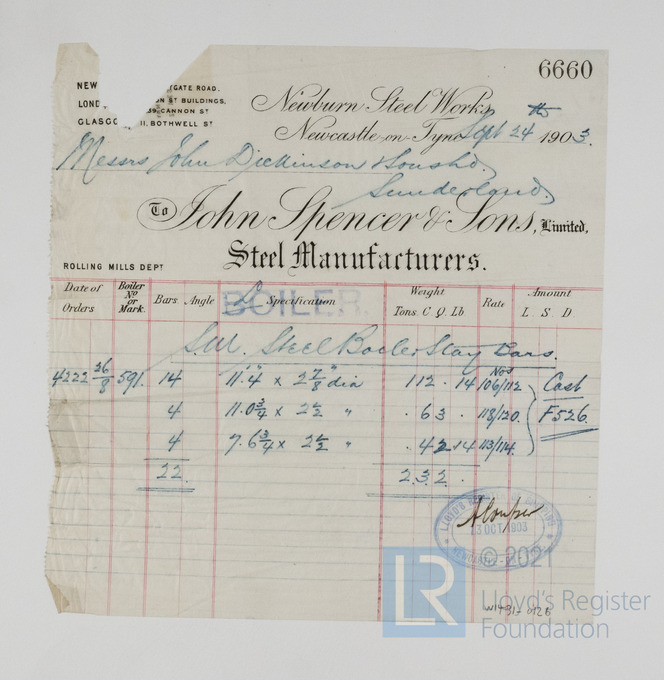 6660
NEW TGATE ROAD.
LOND ON ST BUILDINGS,
39 CANNON ST
GLASGO 11, BOTHWELL ST
Newburn Steel Works,
Newcastle-on-Tyne Sept 24th 1903.
Messrs John Dickinson & Sons Ld.
Sunderland.
To John Spencer & Sons, Limited,
Steel Manufacturers.
ROLLING MILLS DEPT
Date of Orders Boiler No or Mark. Bars. Angle Specification Weight Tons C Q. Lb Rate Amount L. S. D.
BOILER.
S.M. Steel Boiler Stay Bars.
Nos
4222 26/8 591. 14 11.4 x 2 7/8 dia 1 12 . 14 106/112 Cast
4 11.0 3/4 x 2 1/2 " . 6 3 . 118/120. F526.
4 7.6 3/4 x 2 1/2 " . 4 2 14 113/114.
22. 2.3.2.
LLOYD'S
13 OCT. 1903
NEWCASTLE-
© 2021
LR Lloyd's Register
Foundation
W1431-0126